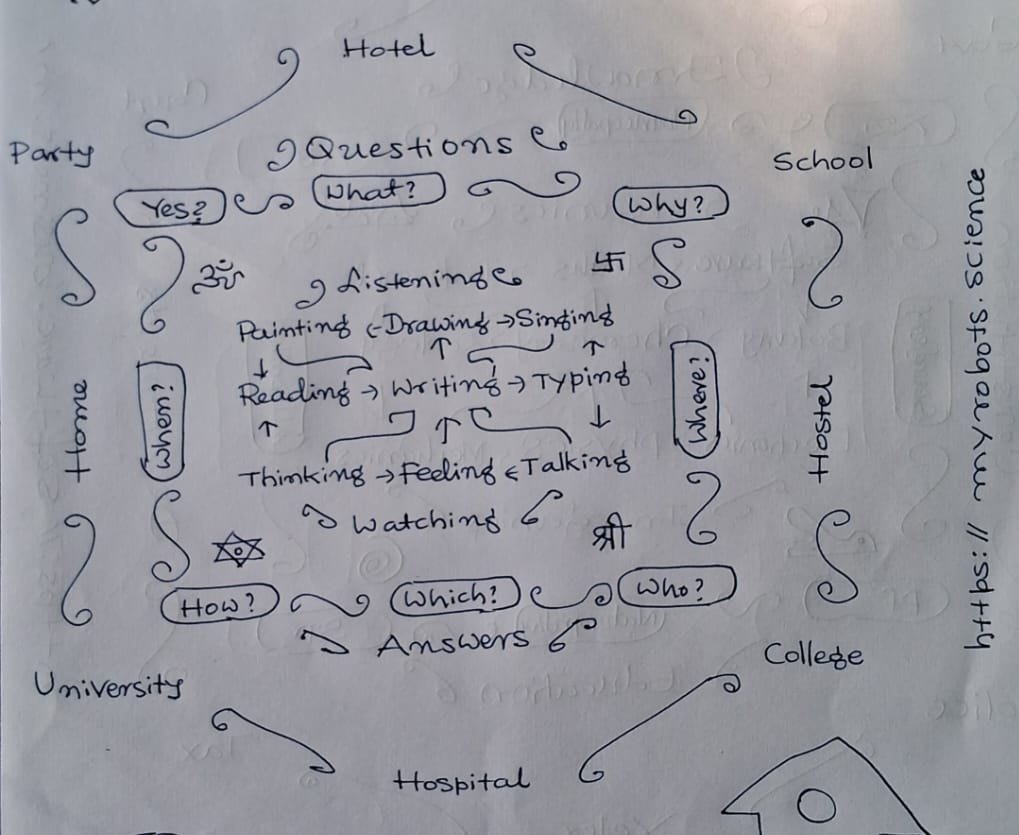 Hotel
Party
Questions
School
Yes?
What?
Why?
ॐ
卐
Listening
Painting ← Drawing → Singing
Reading → Writing → Typing
Home
When?
Where?
Hostel
Thinking → Feeling ← Talking
Watching
श्री
How?
Which?
Who?
Answers
University
College
Hospital
https://myrobots.science